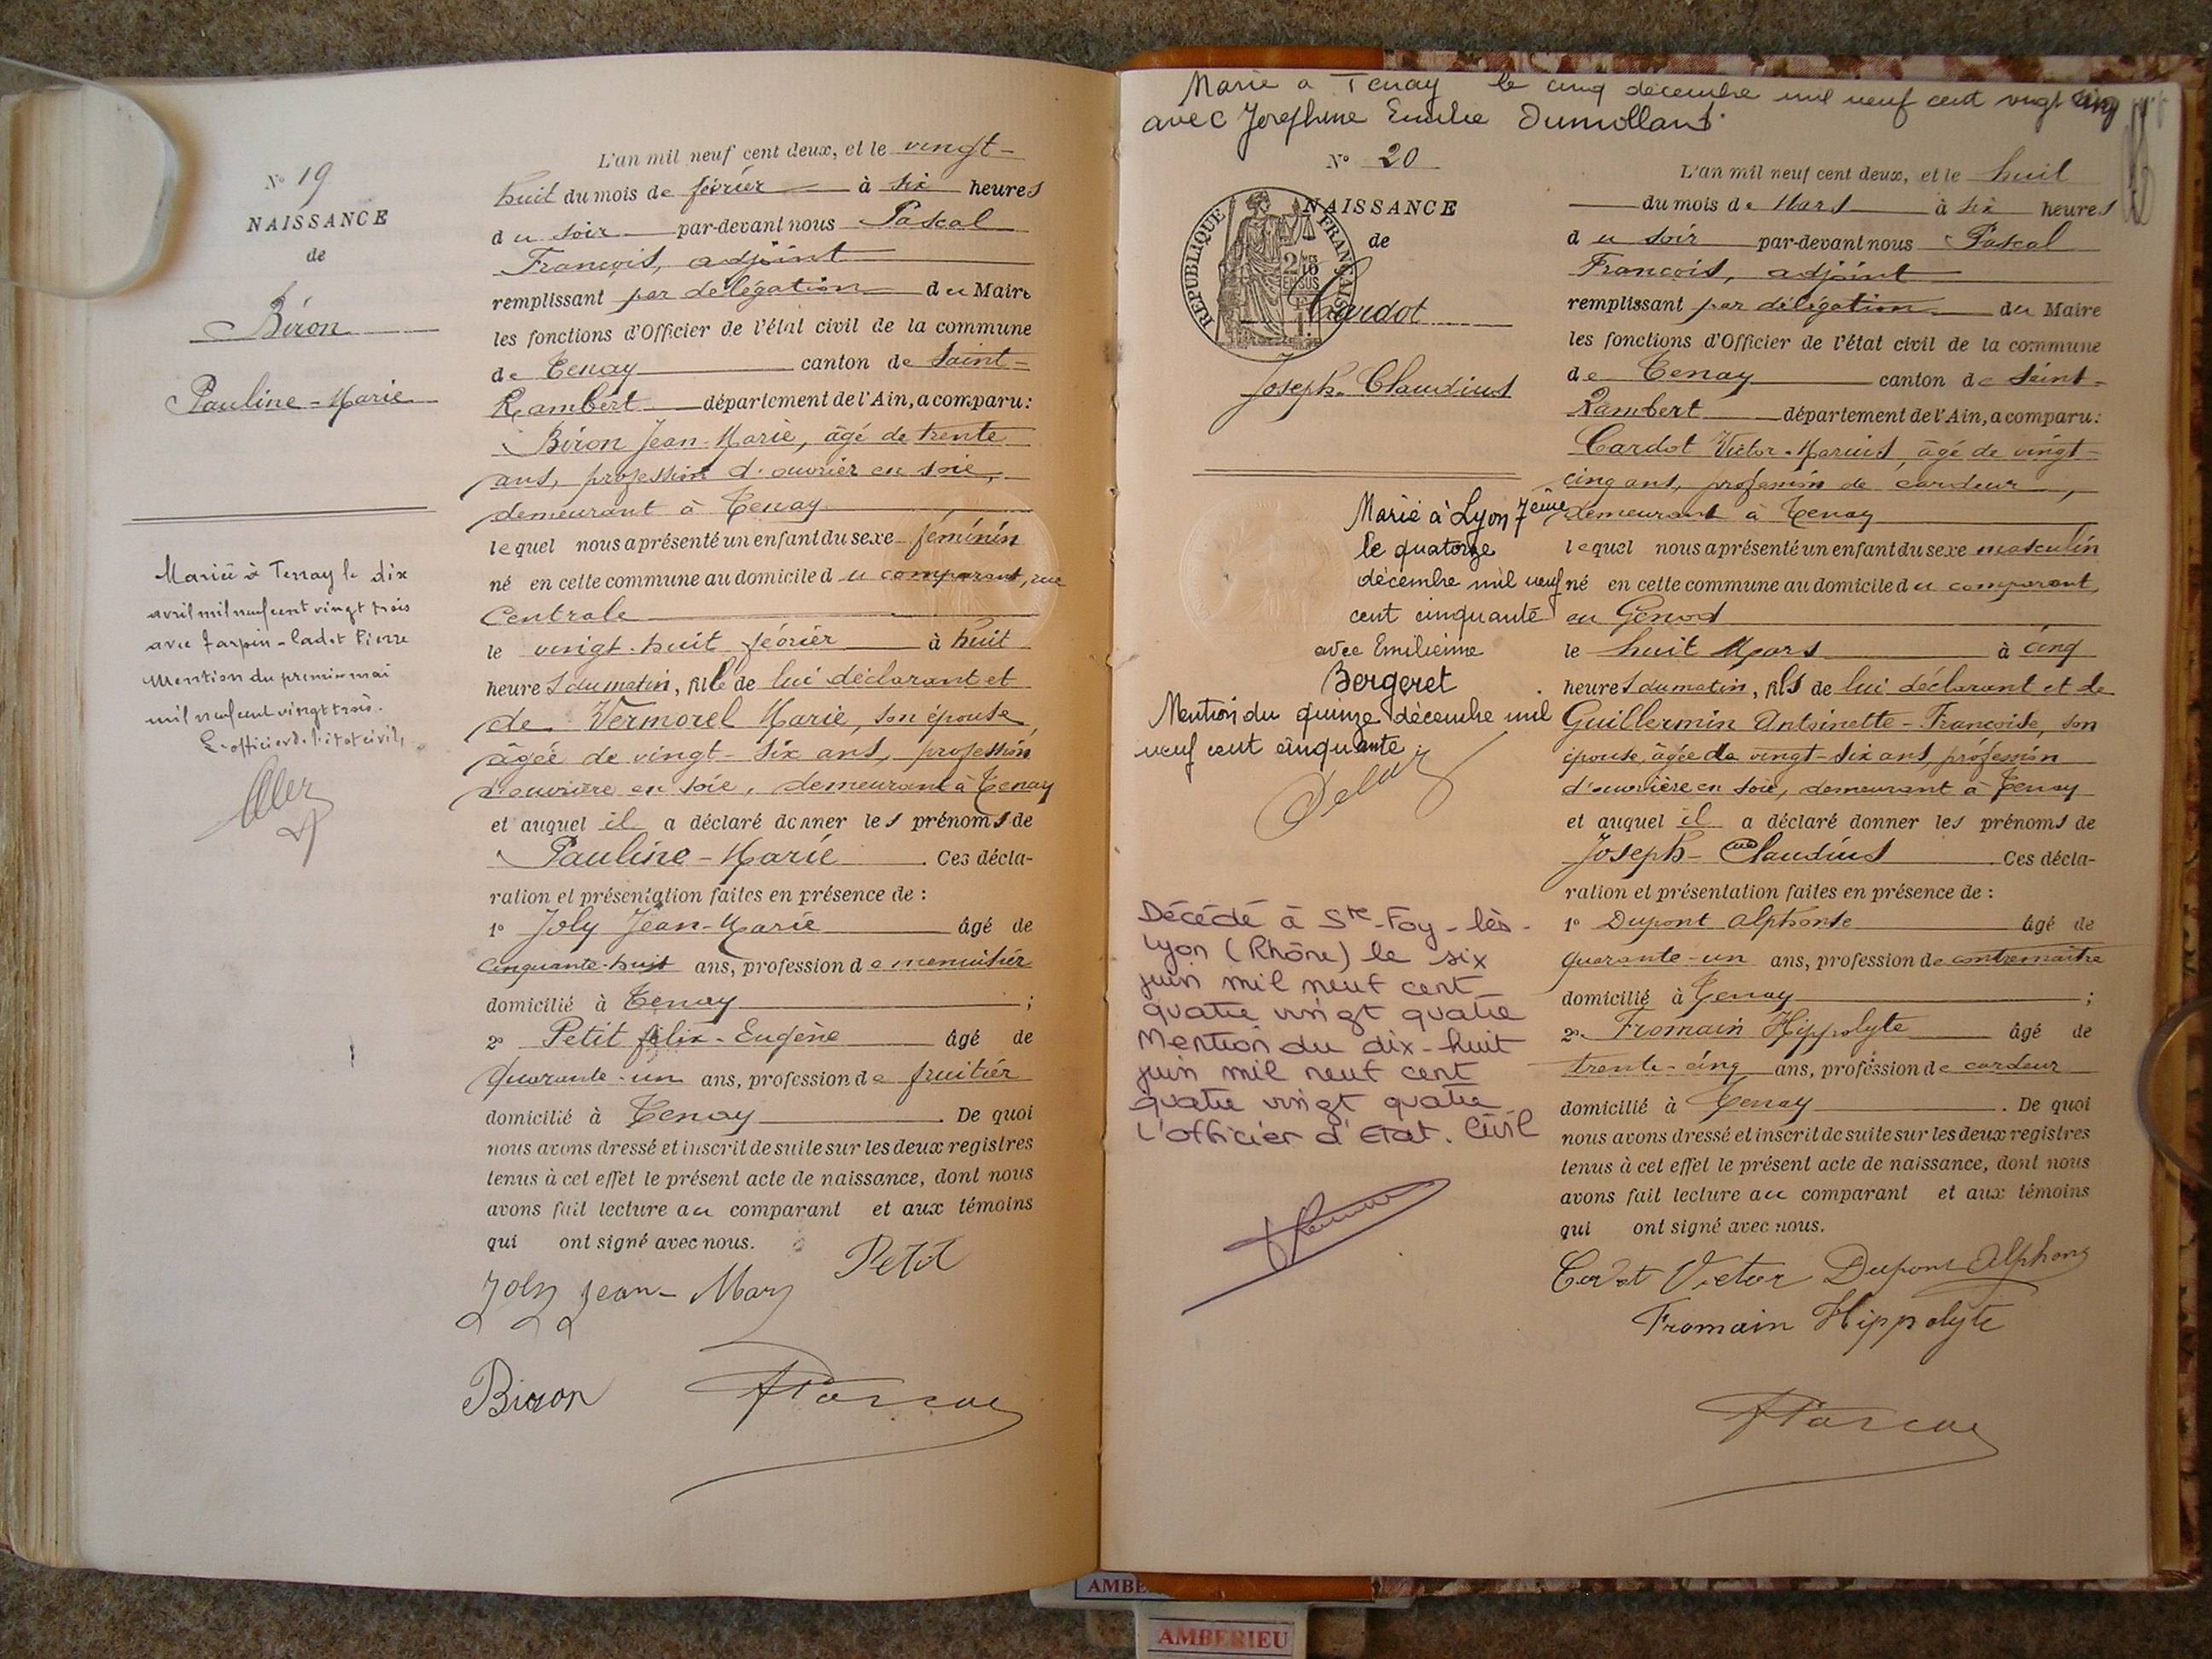 N° 19
NAISSANCE
de
Biron
Pauline-Marie
Mariée à Tenay le dix
avril mil neuf cent vingt trois
avec Tarpin-Cadet Pierre
Mention du premier mai
mil neuf cent vingt trois.
L'officier de l'état civil,
L'an mil neuf cent deux, et le vingt-
huit du mois de février à six heures
du soir par-devant nous Pascal
François, adjoint
remplissant par délégation du Maire
les fonctions d'Officier de l'état civil de la commune
de Tenay canton de Saint-
Rambert département de l'Ain, a comparu:
Biron Jean-Marie, âgé de trente
ans, profession d'ouvrier en soie,
demeurant à Tenay
lequel nous a présenté un enfant du sexe féminin
né en cette commune au domicile du comparant, rue
Centrale
le vingt-huit février à huit
heures du matin, fille de lui déclarant et
de Vermorel Marie, son épouse,
âgée de vingt-six ans, profession
d'ouvrière en soie, demeurant à Tenay
et auquel il a déclaré donner les prénoms de
Pauline-Marie. Ces décla-
ration et présentation faites en présence de :
1° Joly Jean-Marie âgé de
cinquante-huit ans, profession de menuisier
domicilié à Tenay ;
2° Petit félix-Eugène âgé de
quarante-un ans, profession de fruitier
domicilié à Tenay. De quoi
nous avons dressé et inscrit de suite sur les deux registres
tenus à cet effet le présent acte de naissance, dont nous
avons fait lecture au comparant et aux témoins
qui ont signé avec nous.
Joly Jean-Mary Petit
Biron FPascal
Marié a Tenay le cinq décembre mil neuf cent vingt cinq
avec Josephine Emilie Dumollard.
N° 20
REPUBLIQUE FRANÇAISE
NAISSANCE
de
Cardot
Joseph-Claudius
Marié à Lyon 7ème
le quatorze
décembre mil neuf
cent cinquante
avec Emilienne
Bergeret
Mention du quinze décembre mil
neuf cent cinquante.
Décédé à Ste-Foy-lès-
Lyon (Rhône) le six
juin mil neuf cent
quatre vingt quatre
Mention du dix-huit
juin mil neuf cent
quatre vingt quatre
L'officier d'Etat. Civil
L'an mil neuf cent deux, et le huit
du mois de Mars à six heures
du soir par-devant nous Pascal
François, adjoint
remplissant par délégation du Maire
les fonctions d'Officier de l'état civil de la commune
de Tenay canton de Saint-
Rambert département de l'Ain, a comparu:
Cardot Victor-Marius, âgé de vingt-
cinq ans, profession de cardeur,
demeurant à Tenay
lequel nous a présenté un enfant du sexe masculin
né en cette commune au domicile du comparant,
au Genod
le huit Mars à cinq
heures du matin, fils de lui déclarant et de
Guillermin Antoinette-Françoise, son
épouse, âgée de vingt-six ans, profession
d'ouvrière en soie, demeurant à Tenay
et auquel il a déclaré donner les prénoms de
Joseph-Claudius. Ces décla-
ration et présentation faites en présence de :
1° Dupont Alphonse âgé de
quarante-un ans, profession de contremaitre
domicilié à Tenay ;
2° Fromain Hippolyte âgé de
trente-cinq ans, profession de cardeur
domicilié à Tenay. De quoi
nous avons dressé et inscrit de suite sur les deux registres
tenus à cet effet le présent acte de naissance, dont nous
avons fait lecture au comparant et aux témoins
qui ont signé avec nous.
Cardot Victor Dupont Alphons
Fromain Hippolyte
FPascal
AMBE
AMBERIEU